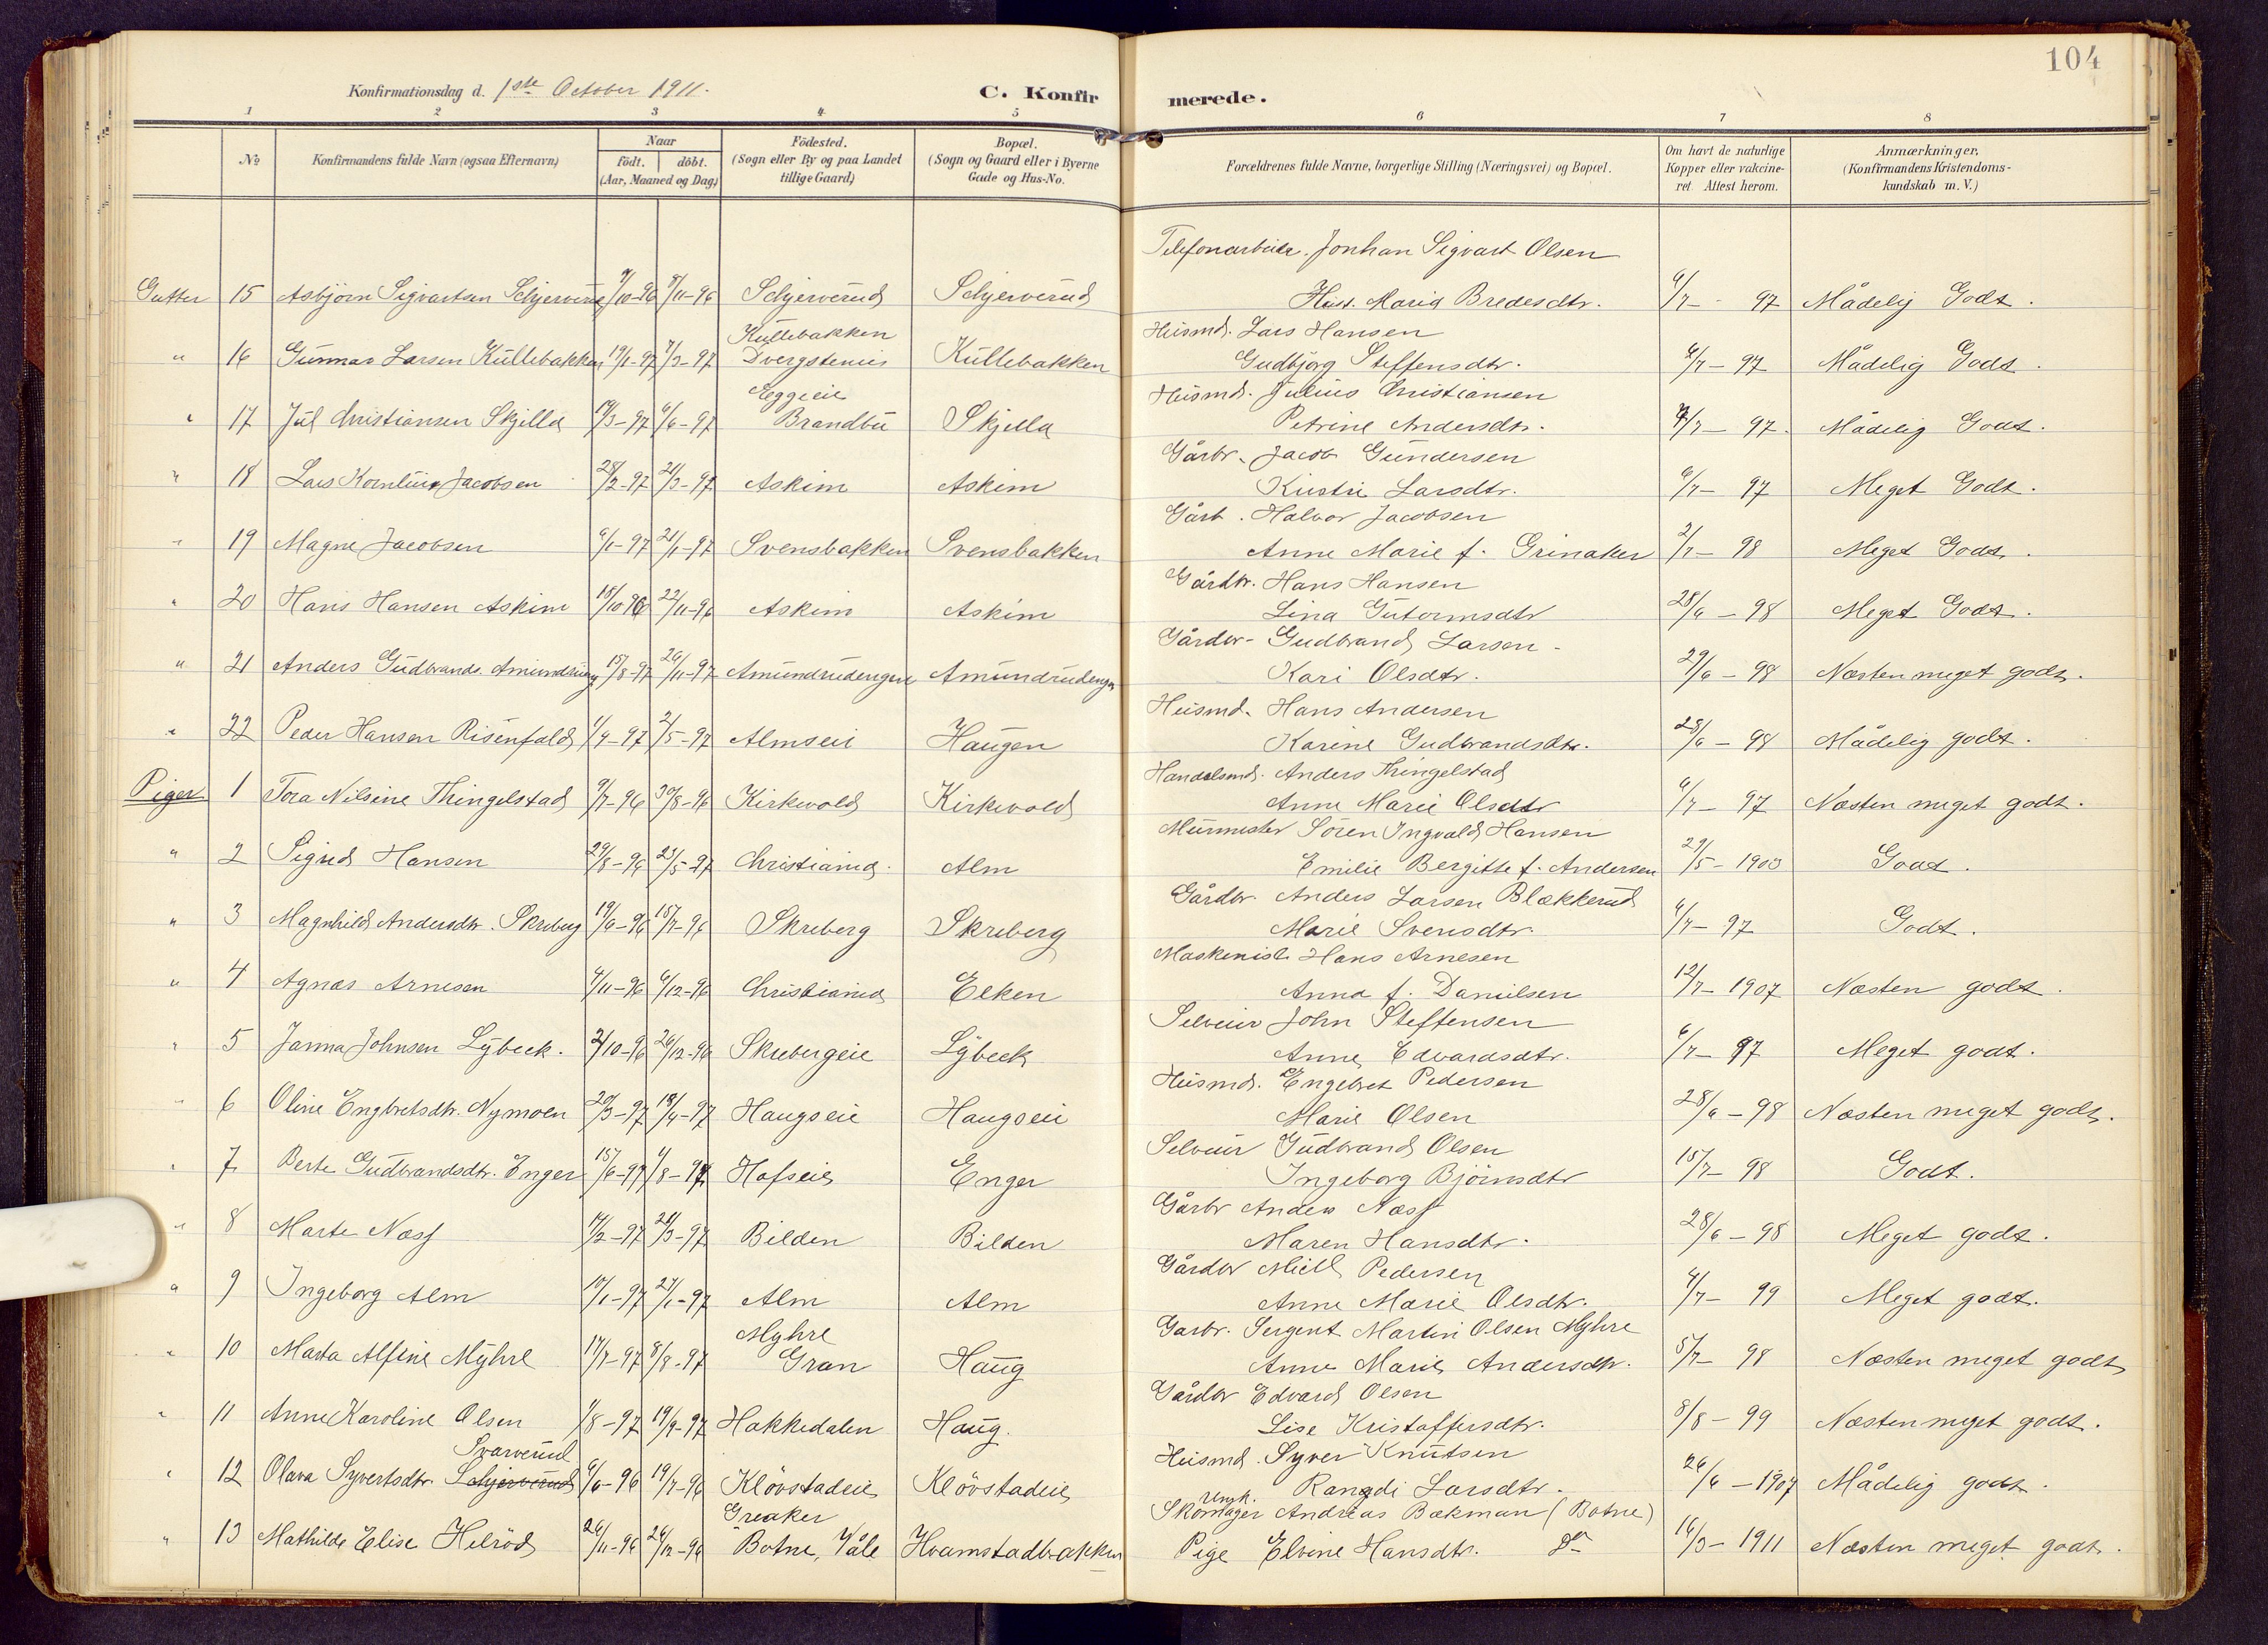 104
Konfirmationsdag d. 1ste October 1911.
C. Konfirmerede.
1 2 3 4 5 6 7 8
No
Konfirmandens fulde Navn (ogsaa Efternavn)
Naar
födt. döbt.
(Aar, Maaned og Dag)
Födested.
(Sogn eller By og paa Landet
tillige Gaard)
Bopæl.
(Sogn og Gaard eller i Byerne
Gade og Hus-No.
Forældrenes fulde Navne, borgerlige Stilling (Næringsvei) og Bopæl.
Om havt de naturlige
Kopper eller vakcine-
ret. Attest herom.
Anmærkninger.
(Konfirmandens Kristendoms-
kundskab m. V.)
Telefonarbeider. Jonhan Sigvart Olsen
Gutter 15 Asbjörn Sigvartsen Schjerverud 9/10-96 8/11-96 Schjerverud Schjerverud Hust. Maria Bredesdtr. 6/7 - 97 Mådelig Godt.
Kullebakken Husmd. Lars Hansen
" 16 Gunnar Larsen Kullebakken 19/1-97 7/3-97 Dvergsteneie Kullebakken Gudbjörg Steffensdtr. 6/7 - 97 Mådelig Godt.
Eggeeie Husmd. Julius Christiansen
" 17 Jul Christiansen Skjella 19/3-97 6/6-97 Brandbu Skjella Petrine Andersdtr. 7/7 - 97. Mådelig Godt.
Gårbr. Jacob Gundersen
" 18 Lars Kornlius Jacobsen 28/2-97 21/3-97 Askim Askim Kirsti Larsdtr. 6/7 - 97 Meget Godt.
Gårb. Halvor Jacobsen
" 19 Magne Jacobsen 6/1-97 21/1-97 Svensbakken Svensbakken Anne Marie f. Grinaker 2/7 - 98 Meget Godt.
Gårdbr. Hans Hansen
" 20 Hans Hansen Askim 18/10 96 22/11-96 Askim Askim Lina Gutormsdtr 28/6 - 98 Meget Godt.
Gårdbr- Gudbrand Larsen
" 21 Anders Gudbrands. Amundrud 15/8-97 26/11-97 Amundrudengen Amundrudengen Kari Olsdtr. 29/6 - 98 Næsten meget godt.
Husmd. Hans Andersen
" 22 Peder Hansen Risenfald 1/4-97 2/5-97 Almseie Haugen Karine Gudbrandsdtr. 28/6 - 98 Mådelig godt.
Handelsmd. Anders Thingelstad
Piger 1 Tora Nilsine Thingelstad 9/7-96 30/8-96 Kirkevold Kirkevold Anne Marie Olsdtr 6/7 - 97 Næsten meget godt.
Murmester Sören Ingvald Hansen
" 2 Sigrid Hansen 29/8-96 23/5-97 Christiania Alm Emilie Bergitte f. Andersen 29/5 - 1903 Godt.
Gårdbr Anders Larsen Blækkerud
" 3 Magnhild Andersdtr. Skreberg 19/6-96 15/7-96 Skreberg Skreberg Marie Svensdtr. 6/7 - 97 Godt.
Maskenist Hans Arnesen
" 4 Agnes Arnesen 4/11-96 6/12-96 Christiania Elken Anna f. Danilsen 12/7 - 1907 Næsten godt.
Selveier John Steffensen
" 5 Janna Johnsen Lybeck. 2/10-96 26/12-96 Skrebergeie Lybeck Anne Edvardsdtr. 6/7 - 97 Meget godt.
Husmd. Engebret Pedersen
" 6 Oline Engbretsdtr. Nymoen 20/3-97 18/4-97 Haugseie Haugseie Marie Olsen 28/6 - 98 Næsten meget godt.
Selveier Gudbrand Olsen
" 7 Berte Gudbrandsdtr. Enger 15/6-97 1/8-97 Hofseie Enger Ingeborg Björnsdtr 15/7 - 98 Godt.
Gårbr Anders Næss
" 8 Marte Næss 14/2-97 21/3-97 Bilden Bilden Maren Hansdtr. 28/6 - 98 Meget godt.
Gårdbr Mickl Pedersen
" 9 Ingeborg Alm 10/1-97 27/1-97 Alm Alm Anne Marie Olsdtr. 4/7 - 99 Meget godt.
Myhre Garbr. Sergent Martin Olsen Myhre
" 10 Marta Alfine Myhre 17/7-97 8/8-97 Gran Haug Anne Marie Andersdtr. 5/7 - 98 Næsten meget godt
Gårdbr Edvard Olsen
" 11 Anne Karoline Olsen 1/8-97 19/9-97 Hakkedalen Haug. Lise Kristoffersdtr. 8/8 - 99 Næsten meget godt.
Svarverud Husmd. Syver Knutsen
" 12 Olava Syvertsdtr. Schjerverud 6/6-96 19/7-96 Klövstadeie Klövstadeie Rangdi Larsdtr. 26/6 - 1907 Mådelig godt.
Greaker Ungk. Skomager Andreas Bækman (Botne)
" 13 Mathilde Elise Helröd 26/11-96 26/12-96 Botne, Våle Hvamstadbakken Pige Elvine Hansdtr. Do 16/3 - 1911 Næsten meget godt.